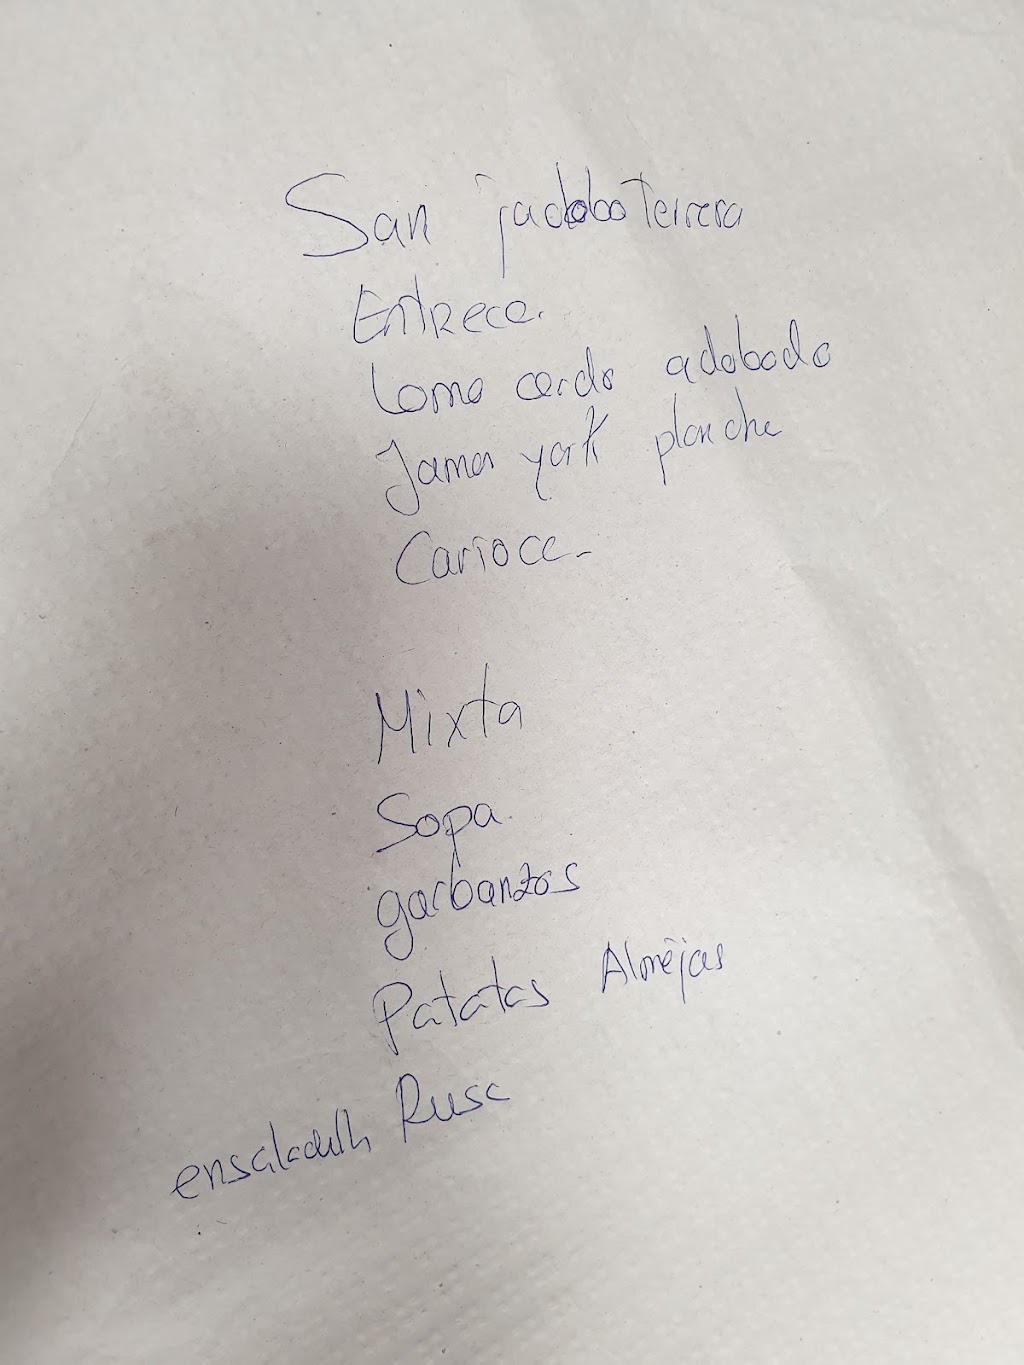 San jacobo Ternera
Entrece.
Lomo cerdo adobado
Jamon york planche
Carioca-
Mixta
Sopa
garbanzos
Patatas Almejas
ensaladilla Rusa